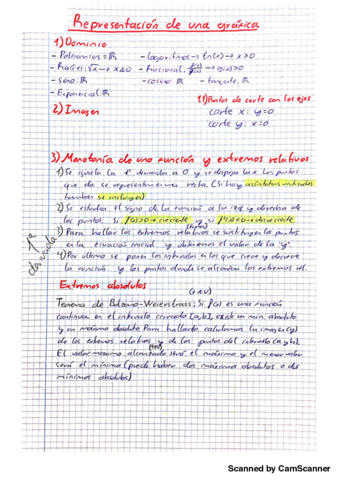 Representación de una gráfica
1) Dominio
- Polinomios = ℝ - logaritmos → ln(x) → x>0
- Raíces: √x → x≥0 - Racional: f(x)/g(x) →
- seno: ℝ - coseno: ℝ - tangente: ℝ
- Exponencial: ℝ
1.1) Puntos de corte con los ejes
2) Imagen corte x: y=0
corte y: x=0
3) Monotonía de una función y extremos relativos
1) Se iguala la 1ª derivada a 0 y se despeja la x. Los puntos
que da se representan en una recta (Si hay asíntotas verticales
también se incluyen)
2) Se estudia el signo de la función a la izq y derecha de
los puntos. Si f'(x)>0 → creciente y si f'(x)<0 → decreciente
3) Para hallar los extremos relativos se sustituyen los puntos
en la ecuación inicial y obtenemos el valor de la "y".
4) Por último se ponen los intervalos en los que crece y decrece
la función y los puntos donde se alcanzan los extremos rel.
1ª derivada
Extremos absolutos
Teorema de Bolzano-Weierstrass: Si f(x) es una función
continua en el intervalo cerrado [a,b], existe un mín. absoluto
y un máximo absoluto. Para hallarlo calculamos la imagen (y)
de los extremos relativos y de los puntos del intervalo (a y b).
El valor máximo alcanzado será el máximo y el menor valor
será el mínimo (puede haber dos máximos absolutos o dos
mínimos absolutos)
Scanned by CamScanner